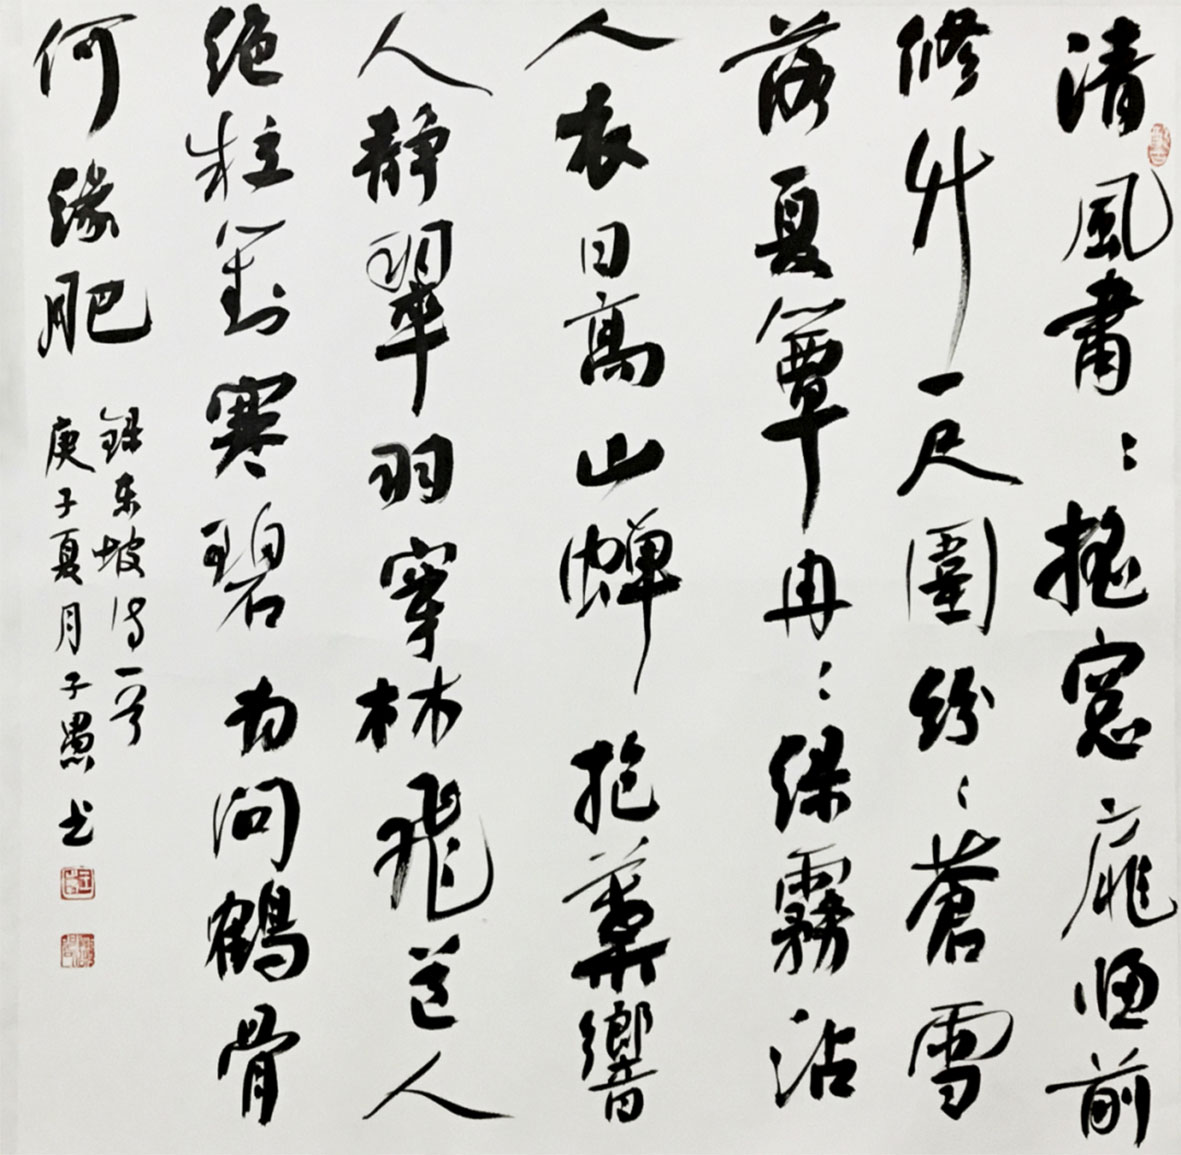 清風肅〻搖窓扉牕前
修竹一尺圍紛〻蒼雪
落夏簟冉〻綠霧沾
人衣日高山蟬抱葉響
人靜翠羽穿林飛道人
絶粒對寒碧为问鶴骨
何緣肥
錄东坡诗一首
庚子夏月子愚书